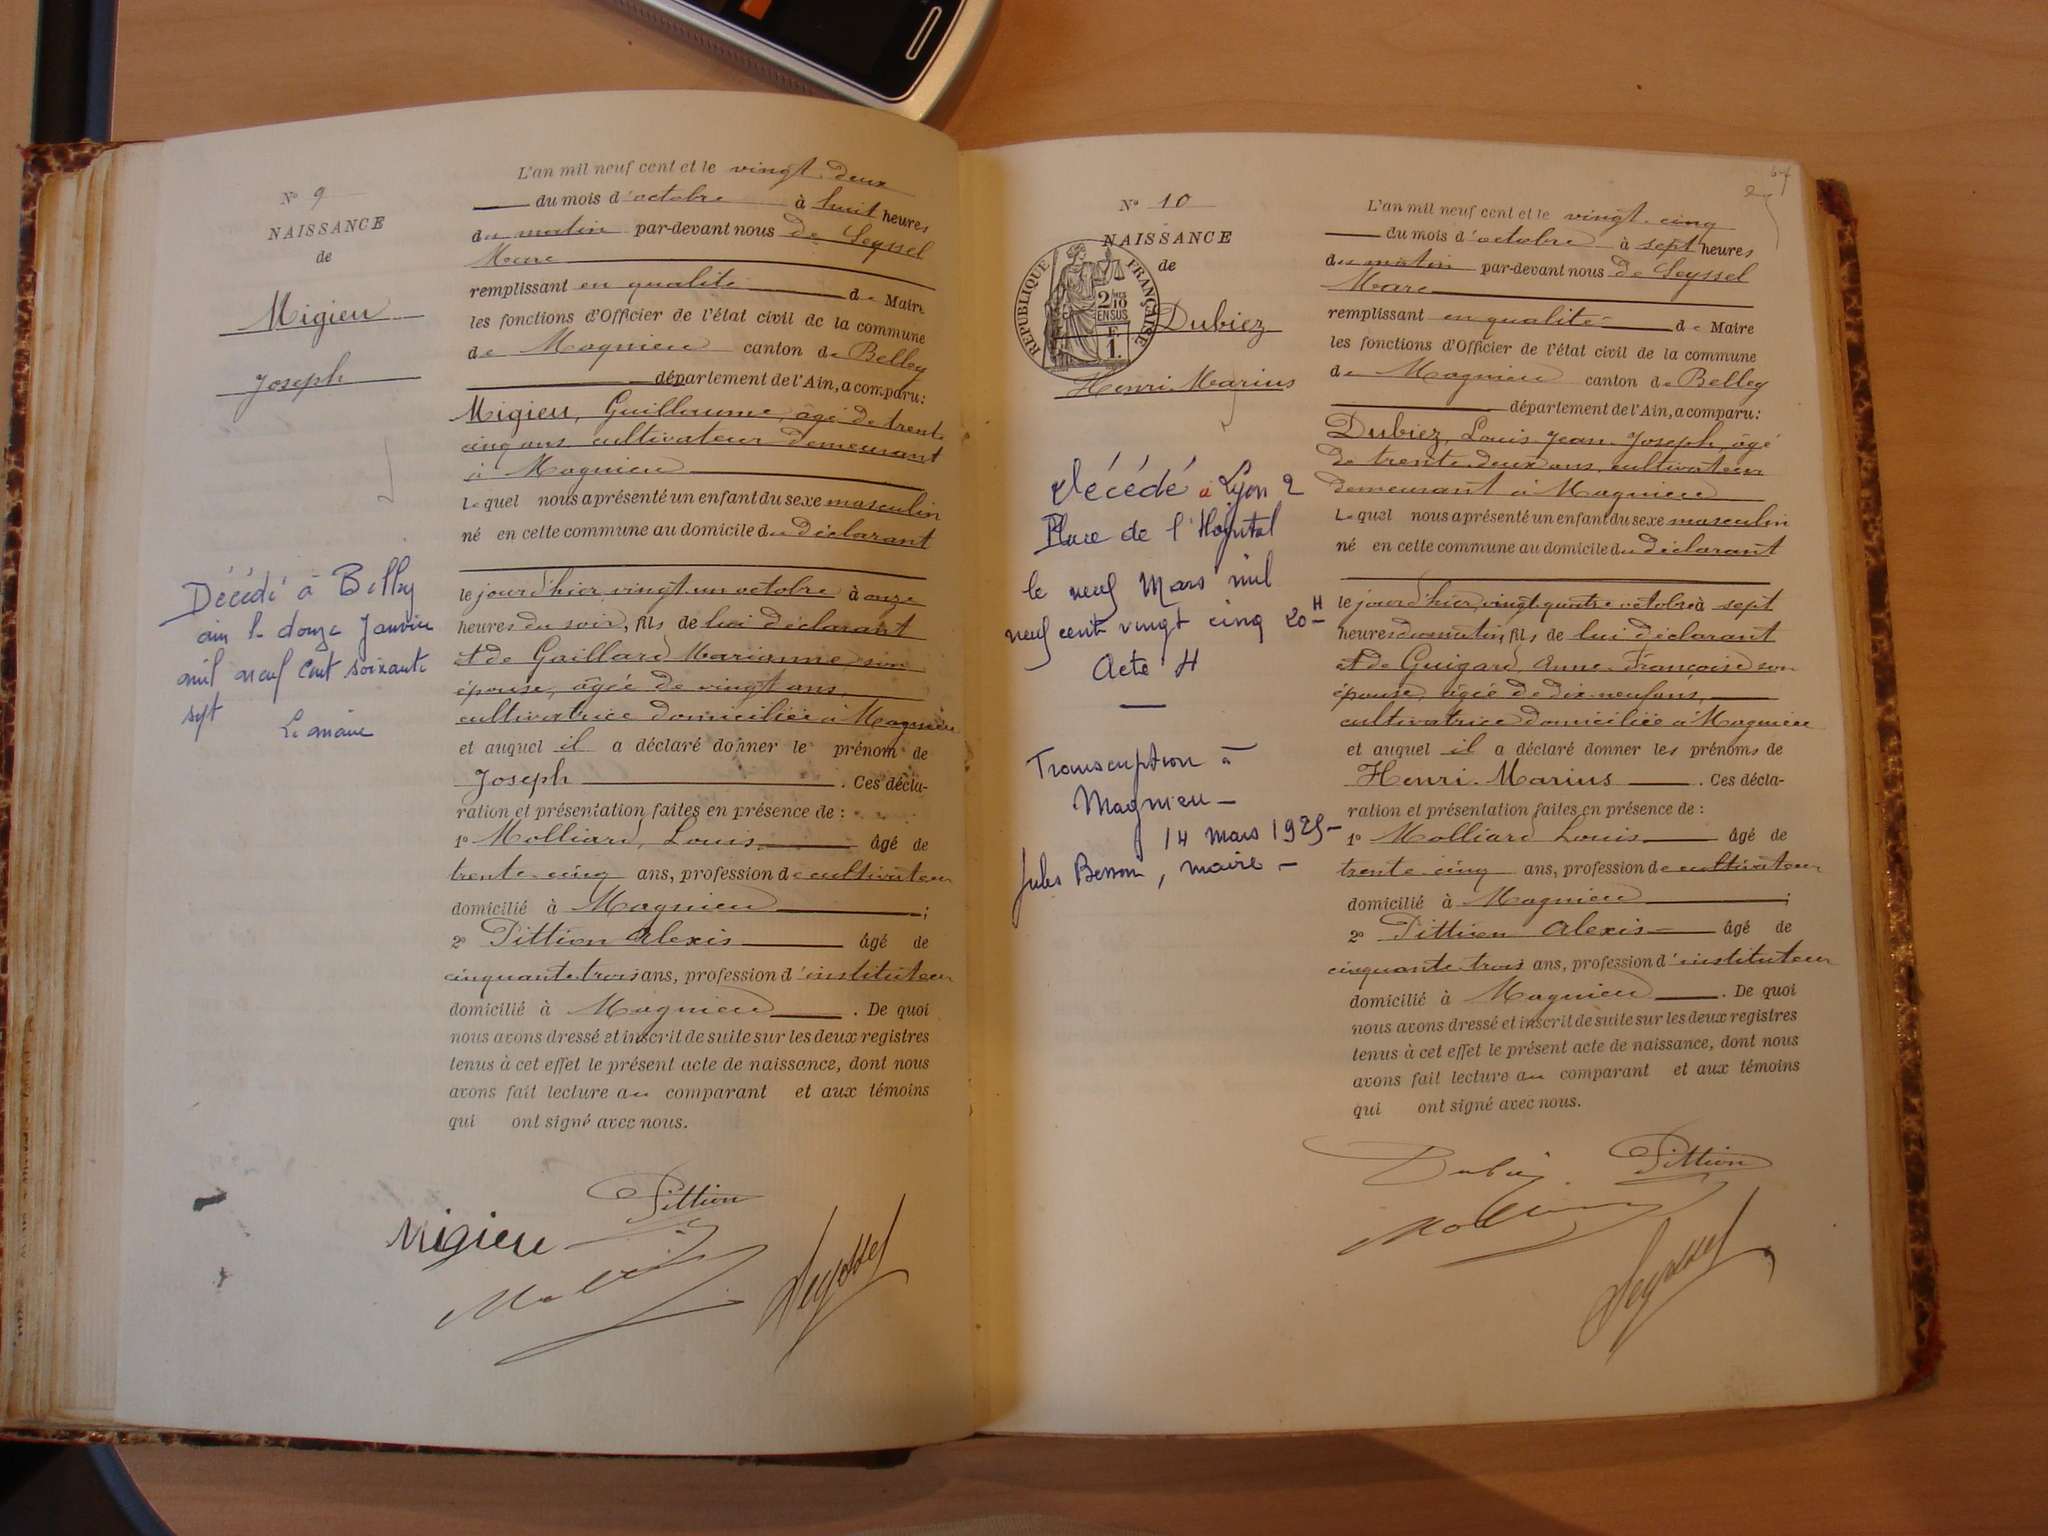 L'an mil neuf cent et le vingt deux
du mois d'octobre à huit heures
du matin par-devant nous de Seyssel
Marc
remplissant en qualité de Maire
les fonctions d'Officier de l'état civil de la commune
de Magnieu canton de Belley
département de l'Ain, a comparu:
Migieu, Guillaume, âgé de trente
cinq ans cultivateur demeurant
à Magnieu
Lequel nous a présenté un enfant du sexe masculin
né en cette commune au domicile du déclarant
le jour d'hier vingt un octobre à onze
heures du soir, fils de lui déclarant
et de Gaillard Marianne son
épouse, âgée de vingt ans,
cultivatrice domiciliée à Magnieu
et auquel il a déclaré donner le prénom de
Joseph. Ces décla-
ration et présentation faites en présence de :
1º Molliard, Louis âgé de
trente-cinq ans, profession de cultivateur
domicilié à Magnieu ;
2º Pittion Alexis âgé de
cinquante trois ans, profession d'instituteur
domicilié à Magnieu. De quoi
nous avons dressé et inscrit de suite sur les deux registres
tenus à cet effet le présent acte de naissance, dont nous
avons fait lecture au comparant et aux témoins
qui ont signé avec nous.
Pittion
Migieu
Seyssel
Nº 9
NAISSANCE
de
Migieu
Joseph
Décédé à Belley
ain le douze Janvier
mil neuf cent soixante
sept
Le maire
Nº 10
NAISSANCE
de
RÉPUBLIQUE FRANÇAISE
2/10
EN SUS
F
1.
Dubiez
Henri Marius
Décédé à Lyon 2
Place de l'Hôpital
le neuf Mars mil
neuf cent vingt cinq 20 H
Acte H
Transcription à
Magnieu
14 mars 1925
Jules , maire
L'an mil neuf cent et le vingt-cinq
du mois d'octobre à sept heures
du matin par-devant nous de Seyssel
Marc
remplissant en qualité de Maire
les fonctions d'Officier de l'état civil de la commune
de Magnieu canton de Belley
département de l'Ain, a comparu:
Dubiez, Louis Jean Joseph, âgé
de trente-deux ans, cultivateur
demeurant à Magnieu
Lequel nous a présenté un enfant du sexe masculin
né en cette commune au domicile du déclarant
le jour d'hier, vingt-quatre octobre à sept
heures du matin, fils de lui déclarant
et de Guigard Anne Françoise son
épouse, âgée de dix-neuf ans,
cultivatrice domiciliée à Magnieu
et auquel il a déclaré donner les prénoms de
Henri Marius. Ces décla-
ration et présentation faites en présence de :
1º Molliard Louis âgé de
trente-cinq ans, profession de cultivateur
domicilié à Magnieu ;
2º Pittion Alexis âgé de
cinquante trois ans, profession d'instituteur
domicilié à Magnieu. De quoi
nous avons dressé et inscrit de suite sur les deux registres
tenus à cet effet le présent acte de naissance, dont nous
avons fait lecture au comparant et aux témoins
qui ont signé avec nous.
Dubiez Pittion
Seyssel